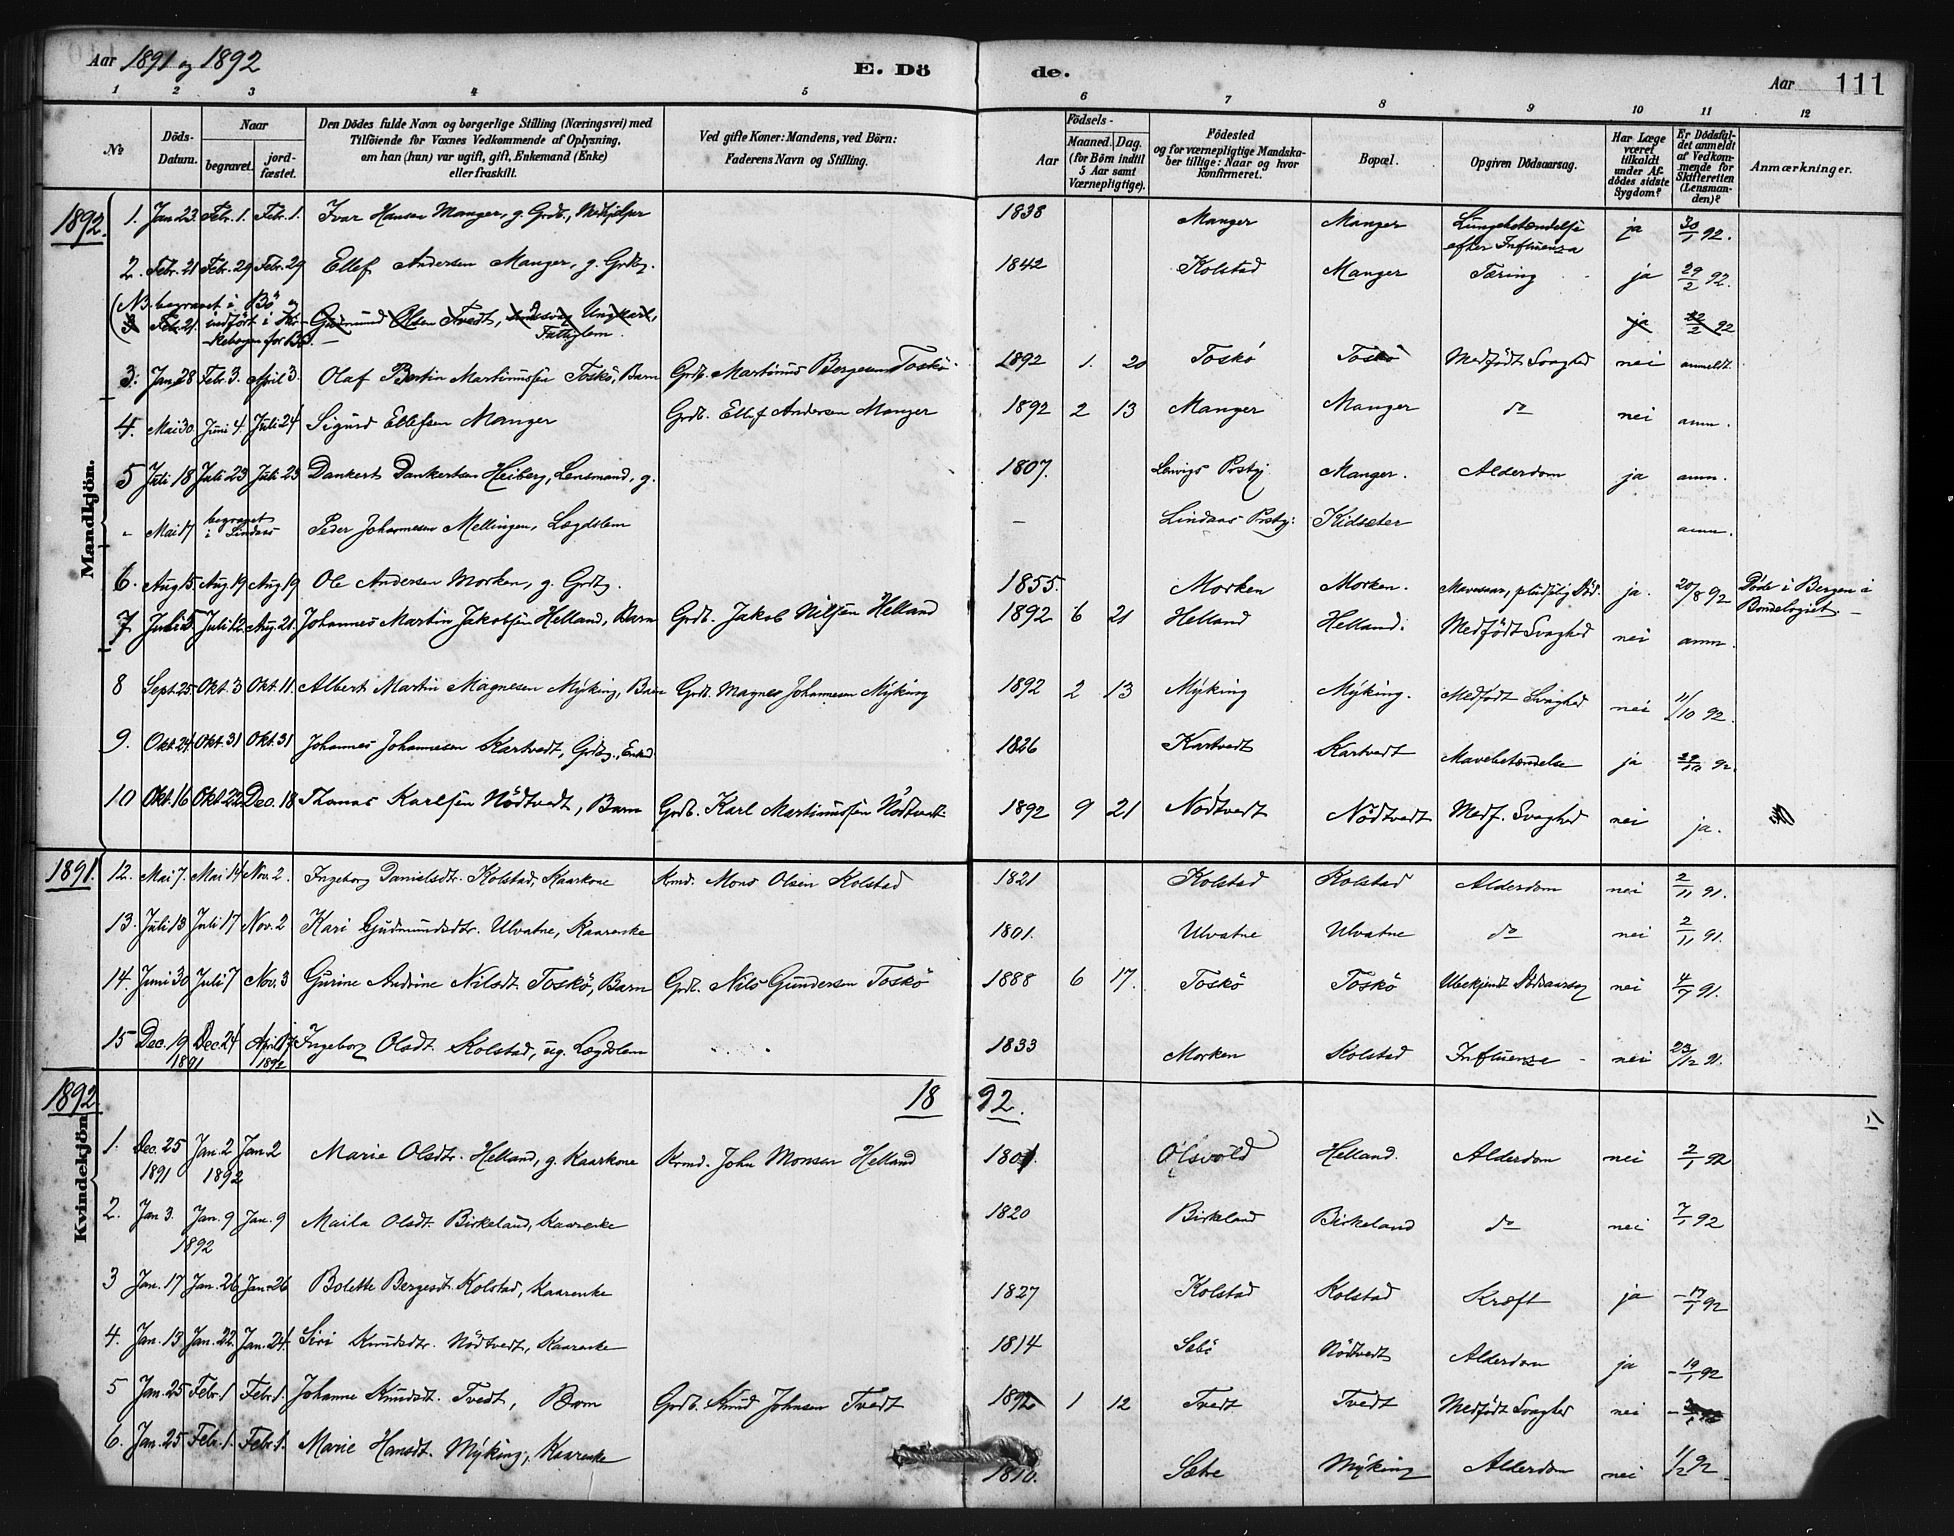 Aar 1891 og 1892
E. Dö de.
Aar 111
1 2 3 4 5 6 7 8 9 10 11 12
No
Döds-Datum.
Naar
begravet.
jordfæstet.
Den Dödes fulde Navn og borgerlige Stilling (Næringsvei) med Tilföiende for Voxnes Vedkommende af Oplysning, om han (hun) var ugift, gift, Enkemand (Enke) eller fraskilt.
Ved gifte Koner: Mandens, ved Börn: Faderens Navn og Stilling.
Födsels-
Aar
Maaned. Dag.
(for Börn indtil 5 Aar samt Værnepligtige).
Födested og for værnepligtige Mandskaber tillige: Naar og hvor konfirmeret.
Bopæl.
Opgiven Dödsaarsag.
Har Læge været tilkaldt under Afdødes sidste Sygdom?
Er Dødsfaldet anmeldt af Vedkommende for Skifteretten (Lensmanden)?
Anmærkninger.
1892.
Mandkjön.
1. Jan. 23. Febr. 1. Febr. 1. Ivar Hansen Manger, g. Grdb., Medhjelper 1838 Manger Manger Lungebetændelse efter Influenza ja 30/1 92.
2. Febr. 21 Febr. 29 Febr. 29 Ellef Andersen Manger, g. Grdbr. 1842 Kolstad Manger Tæring ja 29/2 92.
(NB. begravet i Bö og indfört i Kirkebogen for Bö.
3 Febr. 21. Gudmund Olsen Tvedt, Ungkarl, Fattiglem. ja 22/2 92
3. Jan. 28 Febr. 3. April 3. Olaf Bertin Martinussen Toskö, Barn Grdb. Martinus Bergesen Toskö 1892 1. 20 Toskö Toskö Medfödt Svaghed nei anmeldt.
4. Mai 30. Juni 4. Juli 24 Sigurd Ellefsen Manger Grdb. Ellef Andersen Manger 1892 2 13 Manger Manger do nei anm.
5 Juli 18 Juli 23 Juli 23 Dankert Dankertsen Heiberg, Lensmand, g. 1807. Lavigs Prstgj. Manger. Alderdom ja anm.
" Mai 17 begravet i Lindaas Peder Johannesen Mellingen, Lægdslem — Lindaas Prstgj: Kidsæter anm.
6. Aug 15 Aug 19 Aug 19 Ole Andersen Morken, g. Grdbr. 1855. Morken Morken. Mavesaar, pludselig Död. ja. 20/8 92 Döde i Bergen i Bondelogiet.
7 Juli 5 Juli 12. Aug. 21. Johannes Martin Jakobsen Helland, Barn Grdb. Jakob Nilsen Helland 1892 6 21 Helland Helland. Medfödt Svaghed nei anm.
8 Sept. 25 Okt. 3 Okt. 11. Albert Martin Magnesen Myking, Barn Grdb. Magnes Johannesen Myking 1892 2 13 Myking Myking. Medfödt Svaghed nei 11/10 92.
9. Okt. 24 Okt. 31 Okt. 31 Johannes Johannesen Kartvedt, Grdbr., Enkd 1826 Kartvedt Kartvedt Mavebetændelse ja 92.
10 Okt. 16 Okt 22 Dec. 18 Thomas Karlsen Nödtvedt, Barn Grdb. Karl Martinussen Nödtvedt 1892 9 21 Nödtvedt Nödtvedt Medf. Svaghed nei ja.
1891.
12. Mai 7. Mai 14 Nov. 2. Ingeborg Danielsdtr. Kolstad, Kaarkone Krmd. Mons Olsen Kolstad 1821 Kolstad Kolstad Alderdom nei 2/11 91.
13. Juli 13 Juli 17 Nov. 2 Kari Gudmundsdtr. Ulvatne, Kaarenke 1801. Ulvatne Ulvatne do nei 2/11 91.
14. Juni 30 Juli 7 Nov. 3 Gurine Andrine Nilsdt. Toskö, Barn Grdb. Nils Gundersen Toskö 1888 6 17. Toskö Toskö Ubekjendt Dödsaarsag nei 4/7 91.
15 Dec. 19 1891 Dec 24 April 17 1892 Ingeborg Olsdt. Kolstad, ug. Lægdslem 1833 Morken Kolstad Influenza nei 23/12 91.
1892. 18 92.
Kvindekjön.
1. Dec. 25 1891 Jan. 2 1892 Jan. 2 Marie Olsdtr. Helland, g. Kaarkone Krmd. John Monsen Helland 1801. Olsvold Helland. Alderdom nei 2/1 92
2. Jan 3. Jan. 9 1892 Jan. 9 Maila Olsdt. Birkeland, Kaarenke 1820 Birkeland Birkeland do nei 7/1 92
3 Jan. 17 Jan. 26 Jan. 26 Bolette Bergesdt. Kolstad, Kaarenke 1827 Kolstad Kolstad Kræft ja 17/1 92
4. Jan. 13 Jan. 22. Jan. 24. Siri Knudsdtr. Nödtvedt, Kaarenke 1814 Sebö Nödtvedt Alderdom ja 19/1 92
5 Jan. 25 Febr. 1 Febr. 1. Johanne Knudsdt. Tvedt, Barn Grdb. Knud Johnsen Tvedt 1892 1 12 Tvedt Tvedt Medfödt Svaghed nei
6. Jan. 25 Febr. 1. Febr. 1. Marie Hansdt. Myking, Kaarenke 1810. Sætre Myking Alderdom nei 1/2 92